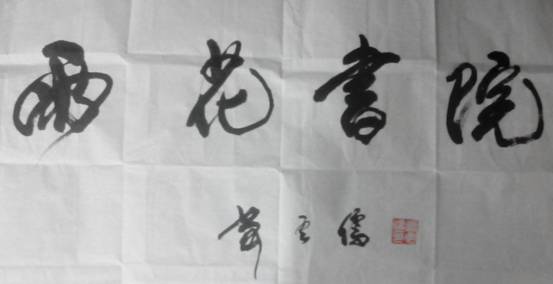 雨花書院
肖云儒